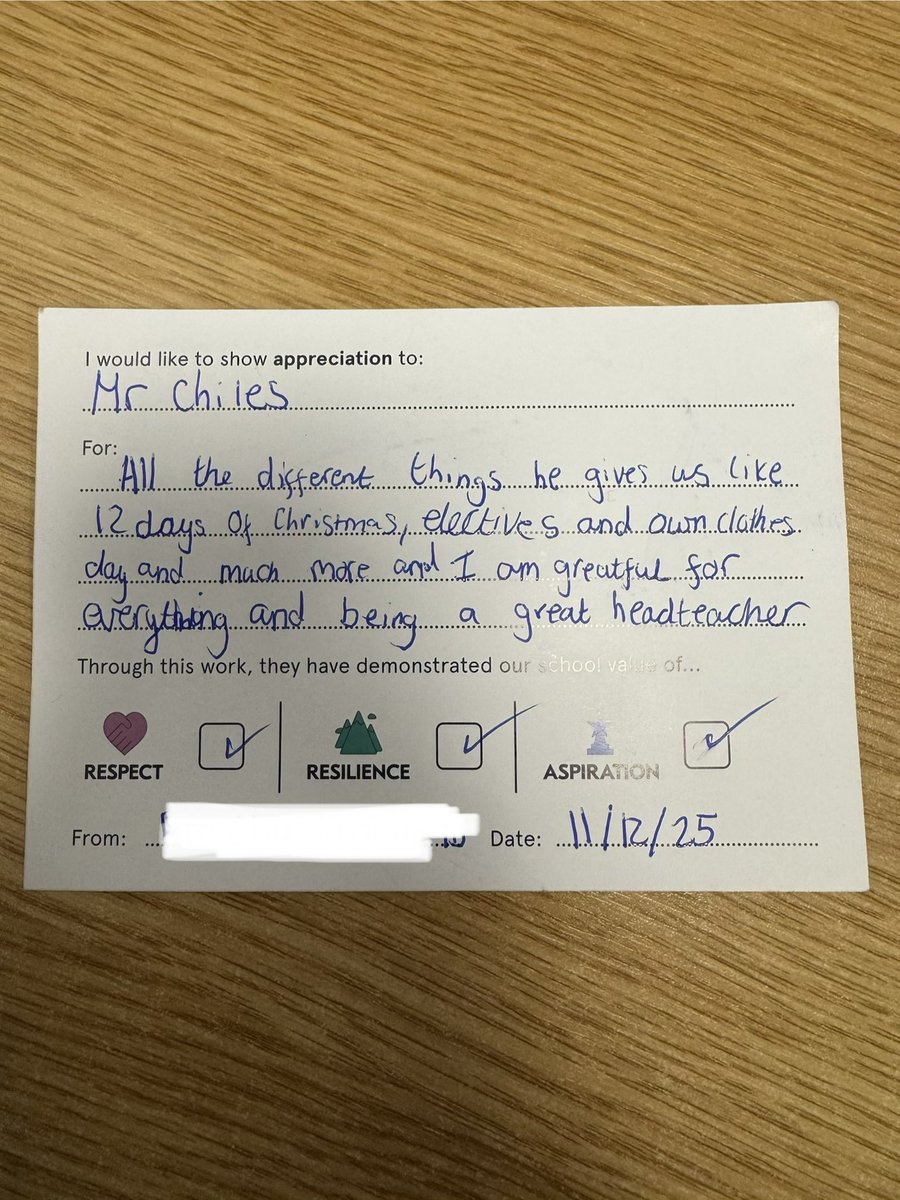 I would like to show appreciation to:
Mr Chiles
For:
All the different things he gives us like
12 days Of Christmas, electives and own clothes
day and much more and I am greatful for
everything and being a great headteacher
Through this work, they have demonstrated our school value of...
RESPECT RESILIENCE ASPIRATION
From: Date: 11/12/25